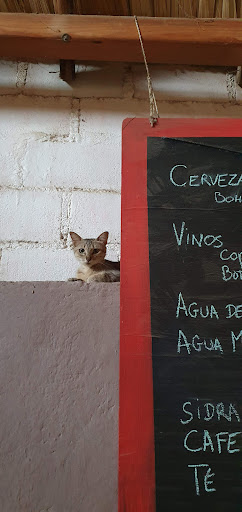 CERVEZA
BOH
VINOS
COP
BOT
AGUA DE
AGUA M
SIDRA
CAFE
TÉ